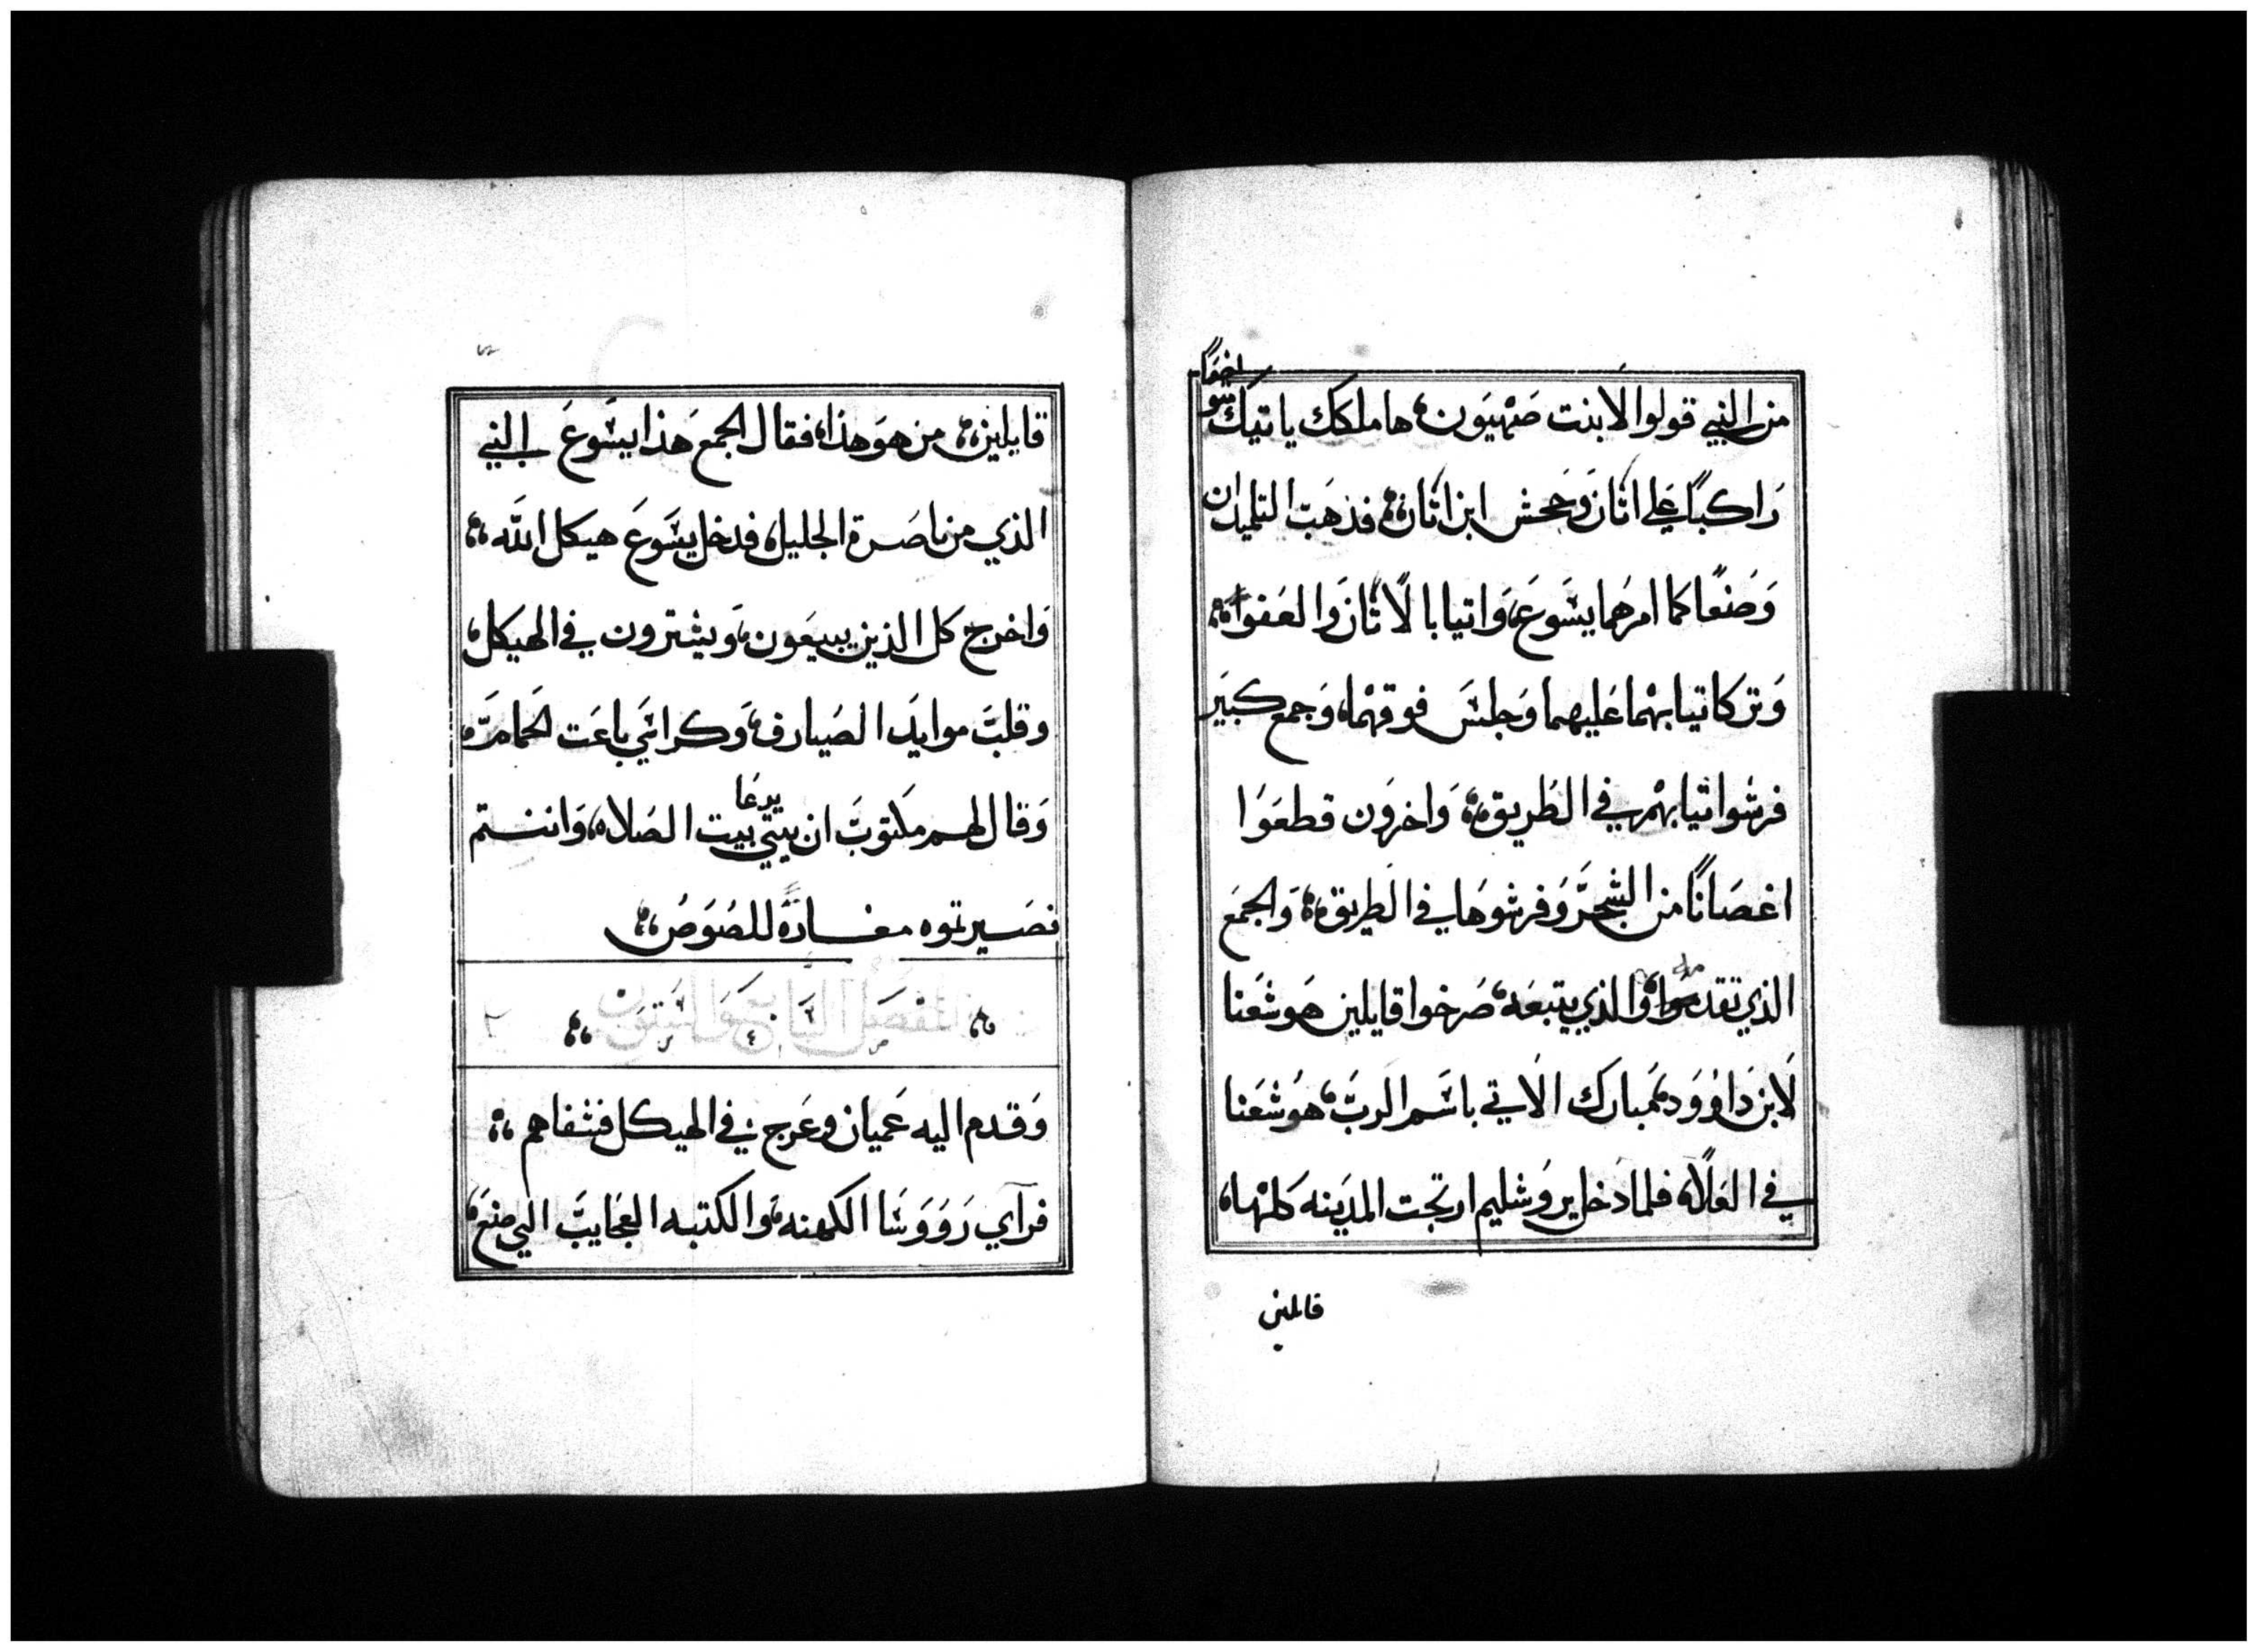 من النبي قولوا لابنت صَهيَون، ها ملكك ياتيك متواضعًا
رَاكبًا علي اتان وَجحش ابن اتان، فذهَبَ التلميدان
وَصَنعَا كما امرَهما يسَوعَ، وَاتيا بالاتان وَالعَفوا،
وَتركا تيابهما عَليهما وَجلسَ فوقهمَا، وَجمع كبَير
فرشوا تيابهم في الطريق، وَاخرَون قطعَوا
اغصَانًا من الشجَر وَفرشوهَا في الطَريق، وَالجمعَ
الذي تقدموا، وَالذي يتبعَه، صَرخوا قايلين هَوشعَنا
لابن دَاوُود، مبارك الاتي باسَم الربَ، هوُشعَنا
في العَلاه، فلما دَخل يروُشليم ارتجت المدَينه كلهَا،
قايلين
قايلين، من هوَ هذا، فقال الجمعَ هَذا يسَوعَ النبي
الذي من ناصَرة الجليل، فدخل يسَوعَ هيكل الله،
وَاخرج كل الذين يبيعَون، وَيشترون في الهيكل،
وقلبَ موايدَ الصَيارف، وَكراسَي باعَت الحَمام،
وَقال لهم مكتوبَ ان بيتي بيت يدعَا الصَلاه، وَانتم
تصَيرتموه مغارَةً للصُوَصُ،
الفصَل الَرابع وَالستَون
وَقدم اليه عَميان وعَرج في الهيكل فشفاهم،
فرآي رَوَوَسَا الكهنه، وَالكتبه العَجايبَ التي صنعَ،